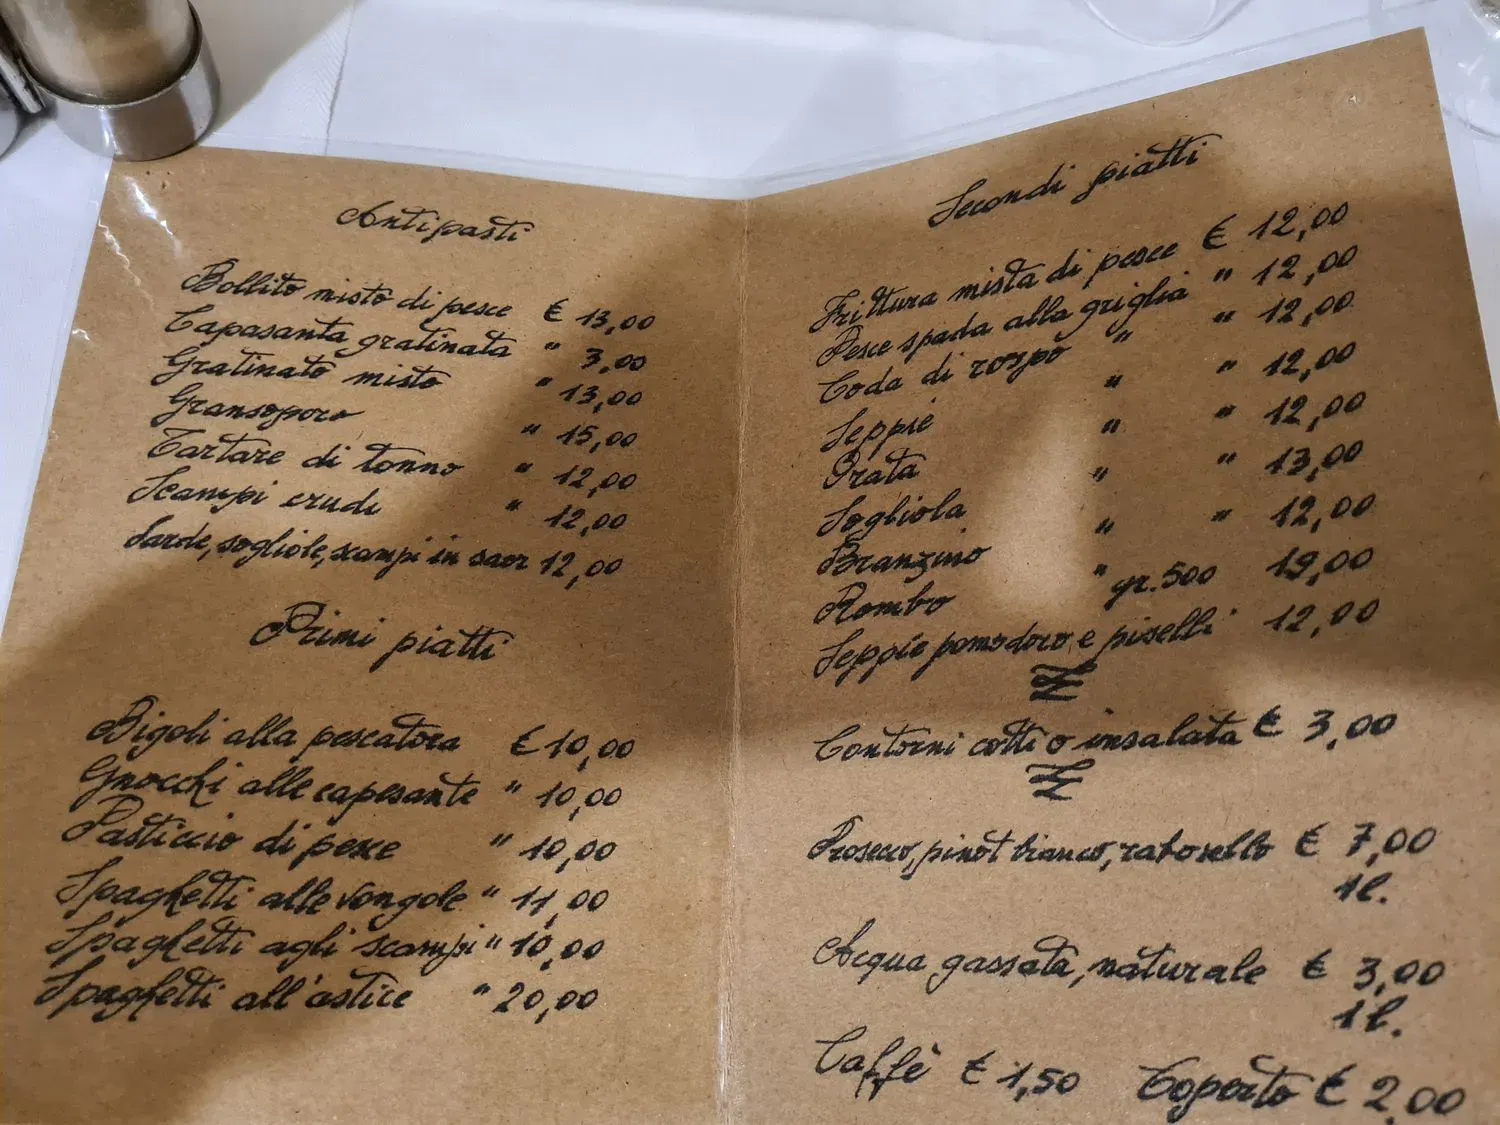 Antipasti
Bollito misto di pesce € 13,00
Capasanta gratinata " 3,00
Gratinato misto " 13,00
Gransoporo " 15,00
Tartare di tonno " 12,00
Scampi crudi " 12,00
Sarde, sogliole, scampi in saor 12,00
Primi piatti
Bigoli alla pescatora € 10,00
Gnocchi alle capesante " 10,00
Pasticcio di pesce " 10,00
Spaghetti alle vongole " 11,00
Spaghetti agli scampi " 10,00
Spaghetti all'astice " 20,00
Secondi piatti
Frittura mista di pesce € 12,00
Pesce spada alla griglia " 12,00
Coda di rospo " " 12,00
Seppie " " 12,00
Orata " " 12,00
Sogliola " " 13,00
Branzino " " 12,00
Rombo " gr.500 19,00
Seppie pomodoro e piselli " 12,00
Contorni cotti o insalata € 3,00
Prosecco, pinot bianco, rabosello € 7,00
1l.
Acqua gassata, naturale € 3,00
1l.
Caffè € 1,50 Coperto € 2,00